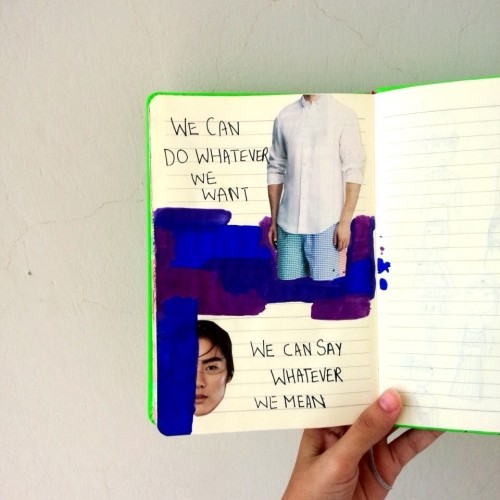 WE CAN
DO WHATEVER
WE
WANT
WE CAN SAY
WHATEVER
WE MEAN